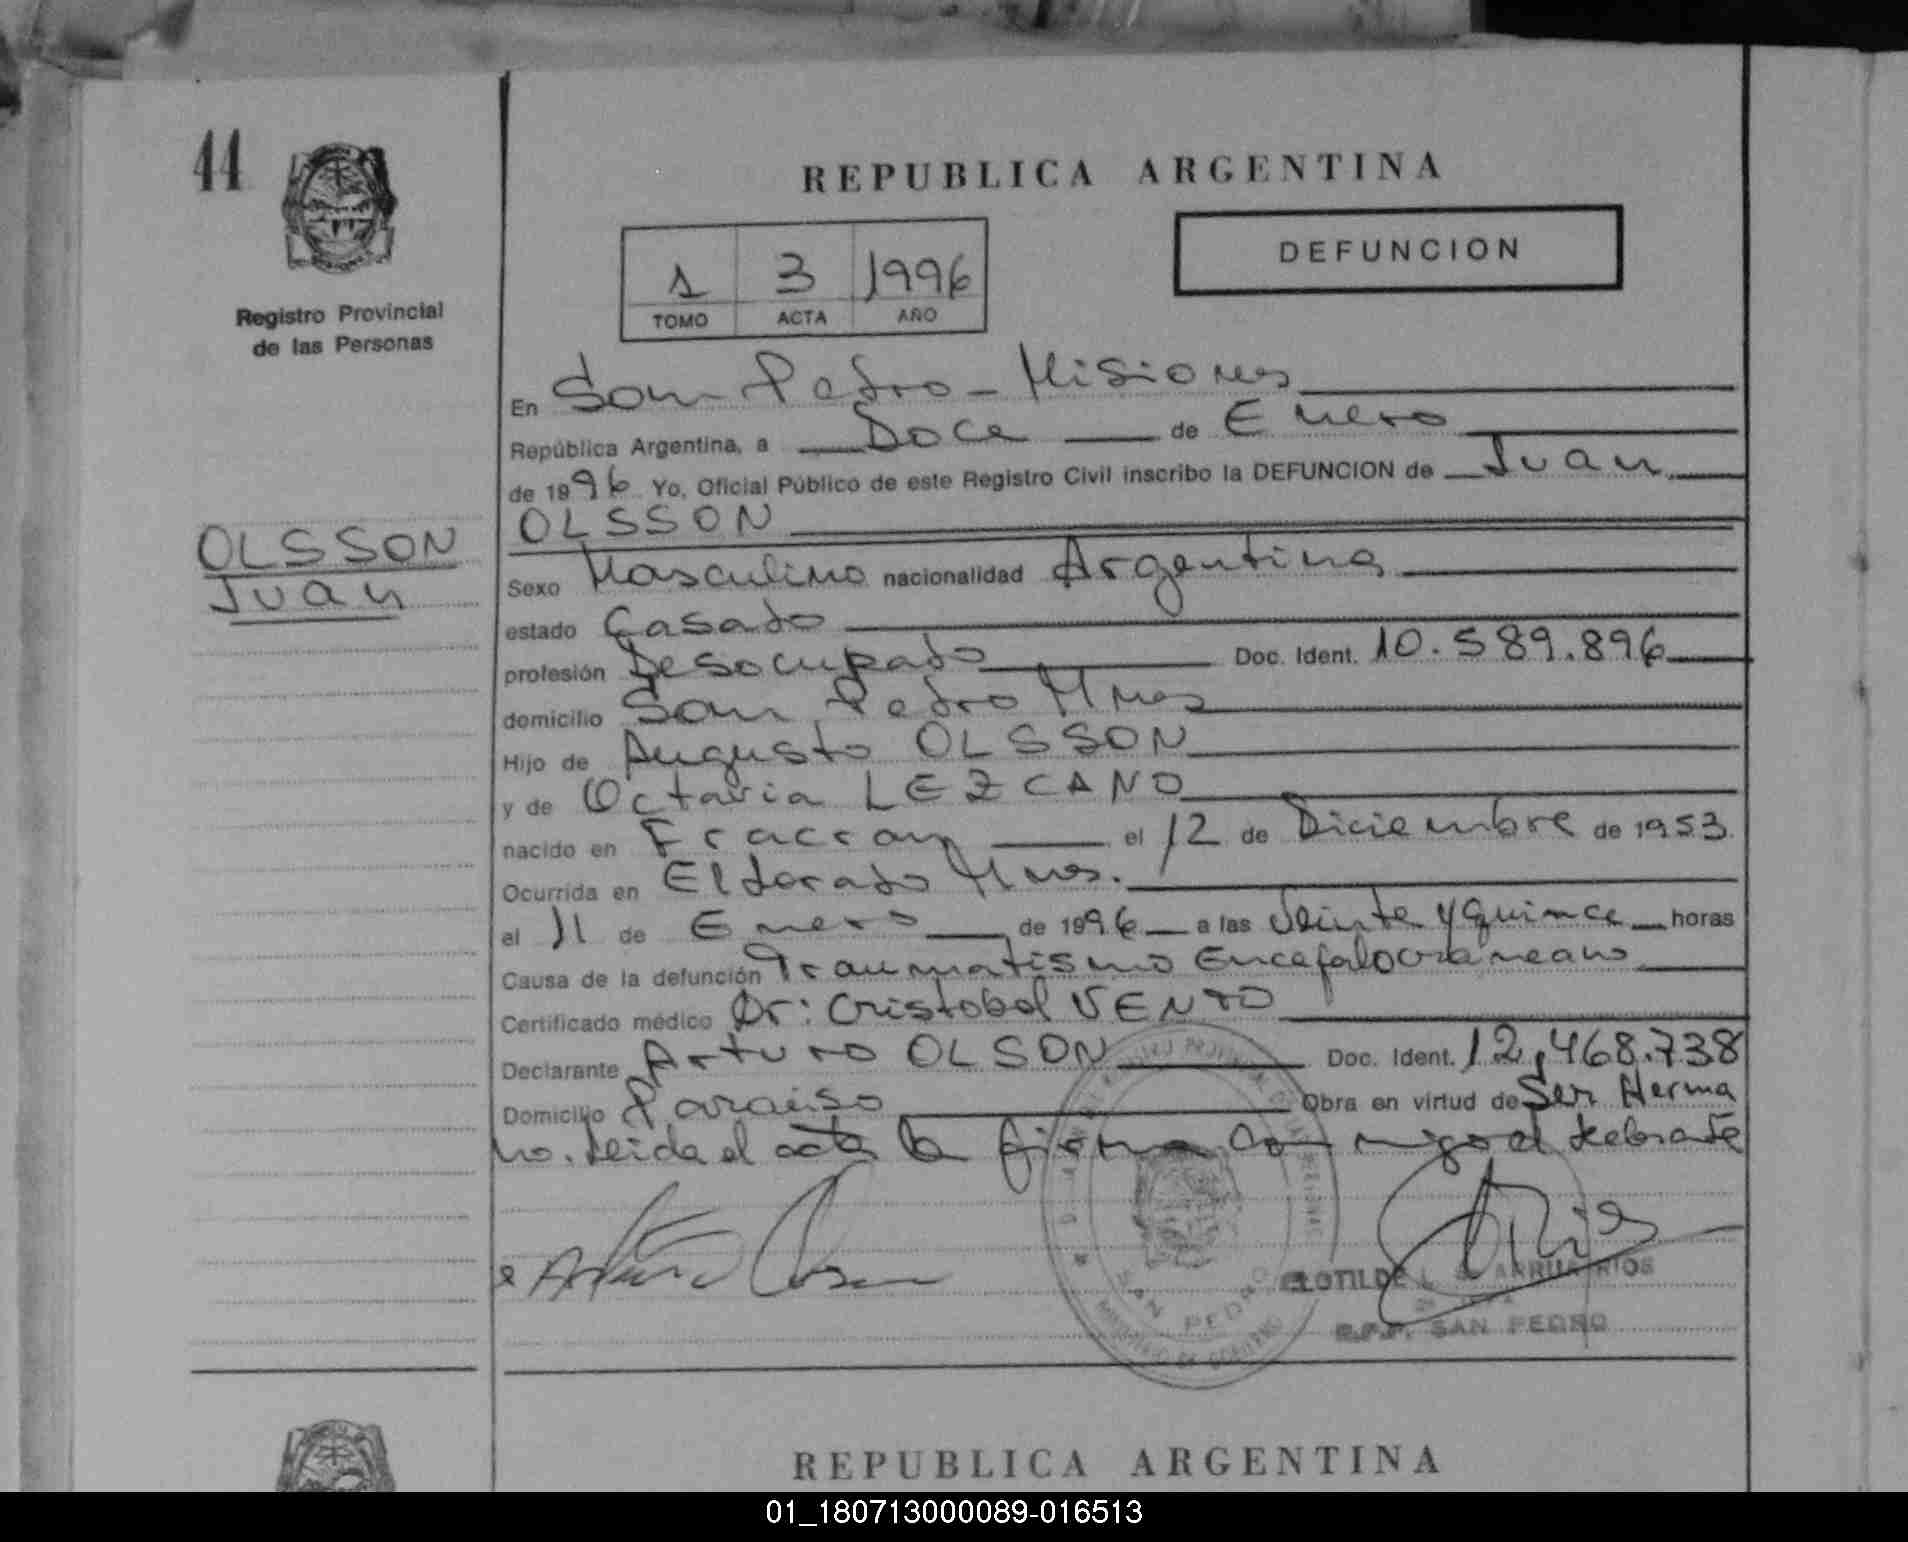 44
REPUBLICA ARGENTINA
1 3 1996
TOMO ACTA AÑO
DEFUNCION
Registro Provincial
de las Personas
En San Pedro - Misiones
República Argentina, a Doce de Enero
de 1996 Yo, Oficial Público de este Registro Civil inscribo la DEFUNCION de Juan
OLSSON
OLSSON
Juan
Sexo Masculino nacionalidad Argentina
estado Casado
profesión Desocupado Doc. Ident. 10.589.896
domicilio San Pedro Mnes
Hijo de Augusto OLSSON
y de Octavia LEZCANO
nacido en Fracran el 12 de Diciembre de 1953
Ocurrida en Eldorado Mnes.
el 11 de Enero de 1996 a las Veinte y Quince horas
Causa de la defunción Traumatismo Encefalocraneano
Certificado médico Dr: Cristobal VENTO
Declarante Arturo OLSON Doc. Ident. 12,468.738
Domicilio Paraiso Obra en virtud de Ser Herma
no. Leida el acta la firma conmigo el
Arturo
CLOTILDE L. ARRUA RIOS
SAN PEDRO
SAN PEDRO
MINISTERIO DE GOBIERNO
REPUBLICA ARGENTINA
01_180713000089-016513